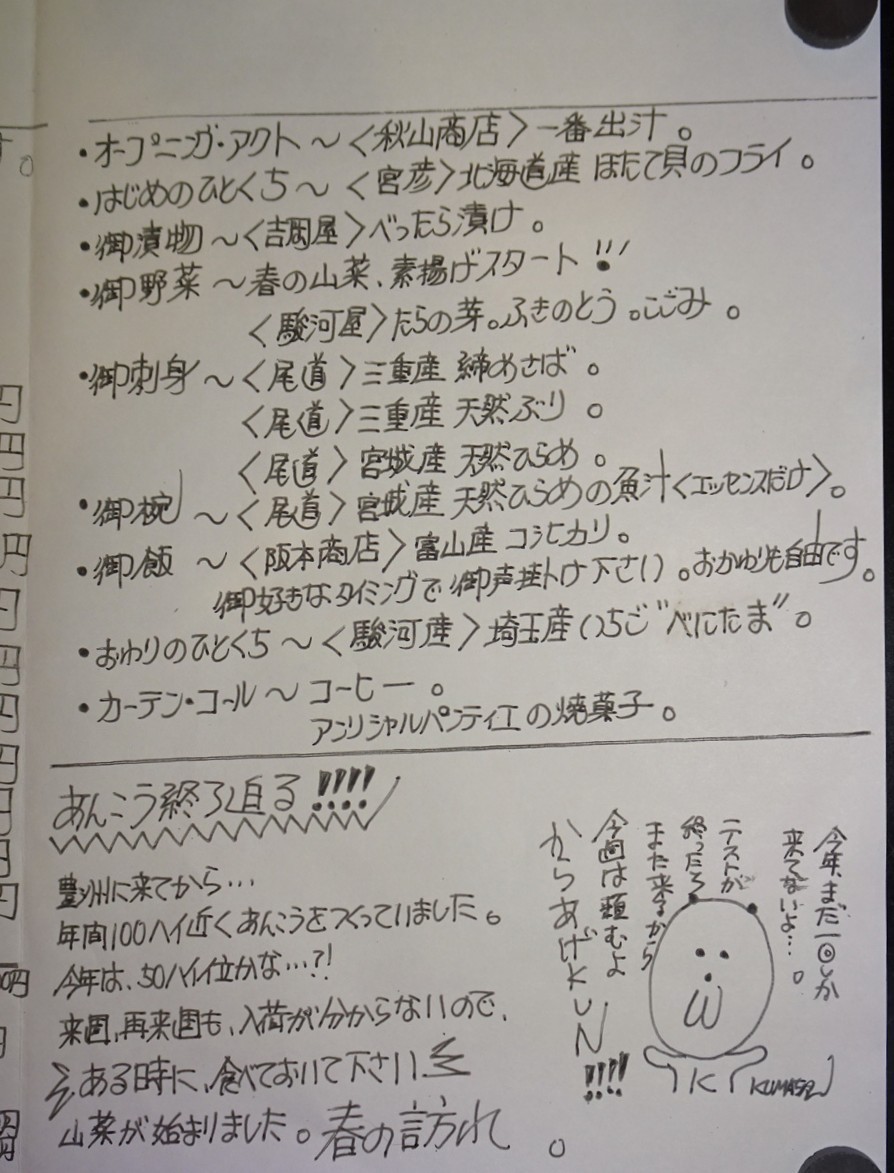 す。
・オープニング・アクト〜〈秋山商店〉一番出汁。
・はじめのひとくち〜〈宮彦〉北海道産 ほたて貝のフライ。
・御漬物〜〈吉岡屋〉べったら漬け。
・御野菜〜春の山菜、素揚げスタート!!
〈駿河屋〉たらの芽。ふきのとう。こごみ。
・御刺身〜〈尾道〉三重産 締めさば。
〈尾道〉三重産 天然ぶり。
〈尾道〉宮城産 天然ひらめ。
・御椀〜〈尾道〉宮城産 天然ひらめの魚汁〈エッセンスだけ〉。
・御飯〜〈阪本商店〉富山産 コシヒカリ。
御好きなタイミングで御声掛け下さい。おかわりも自由です。
・おわりのひとくち〜〈駿河産〉埼玉産いちご"べにたま"。
・カーテン・コール〜コーヒー。
アンリシャルパンティエの焼菓子。
円
円
円
円
円
円
円
円
円
円
円
円
00円
円
円
円
あんこう終了迫る!!!!
豊洲に来てから…
年間100ハイ近くあんこうをつくっていました。
今年は、50ハイ位かな…?!
来週、再来週も、入荷が分からないので、
ある時に、食べておいて下さい
山菜が始まりました。春の訪れ。
今年、まだ一回しか
来てないよ…。
テストが
終ったら
また来るから
今回は頼むよ
からあげKUN!!!!
KUMASAN